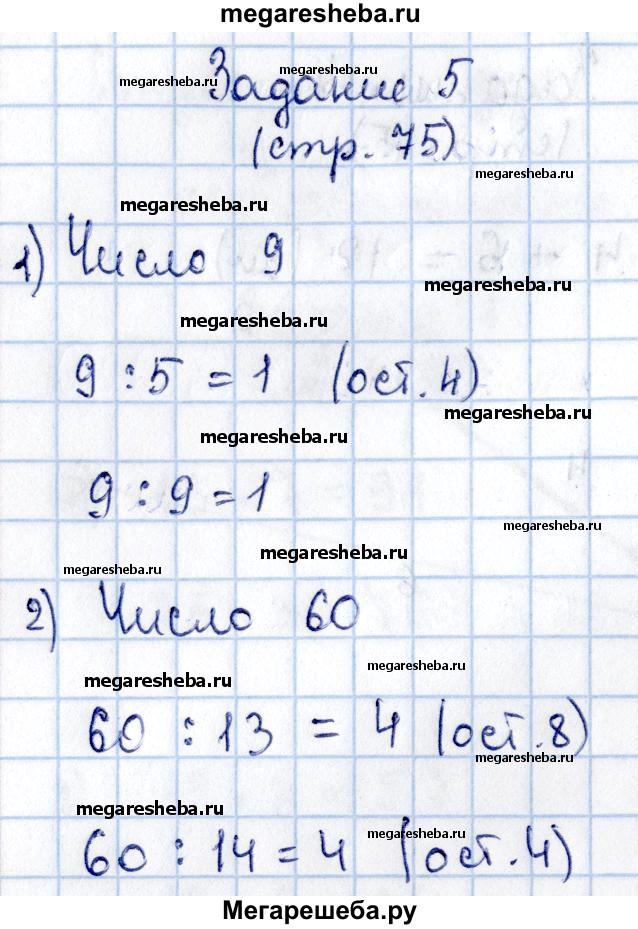 megaresheba.ru
megaresheba.ru
megaresheba.ru
Задание 5
(стр. 75)
megaresheba.ru
megaresheba.ru
1) Число 9
megaresheba.ru
megaresheba.ru
9 : 5 = 1 (ост. 4)
megaresheba.ru
megaresheba.ru
9 : 9 = 1
megaresheba.ru
megaresheba.ru
megaresheba.ru
2) Число 60
megaresheba.ru
megaresheba.ru
60 : 13 = 4 (ост. 8)
megaresheba.ru
megaresheba.ru
megaresheba.ru
60 : 14 = 4 (ост. 4)
Мегарешеба.ру